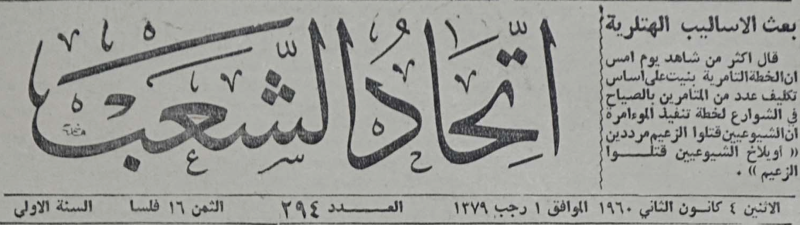 اتحاد الشعب
بعث الاساليب الهتلرية
قال اكثر من شاهد يوم امس
ان الخطة التآمرية بنيت على اساس
تكليف عدد من المتآمرين بالصياح
في الشوارع لخطة تنفيذ الموءامرة
ان الشيوعيين قتلوا الزعيم مرددين
« اويلاخ الشيوعيين قتلـــوا
الزعيم » .
الاثنين ٤ كانون الثاني ١٩٦٠ الموافق ١ رجب ١٣٧٩ العـــدد ٢٩٤ الثمن ١٦ فلسا السنة الاولى